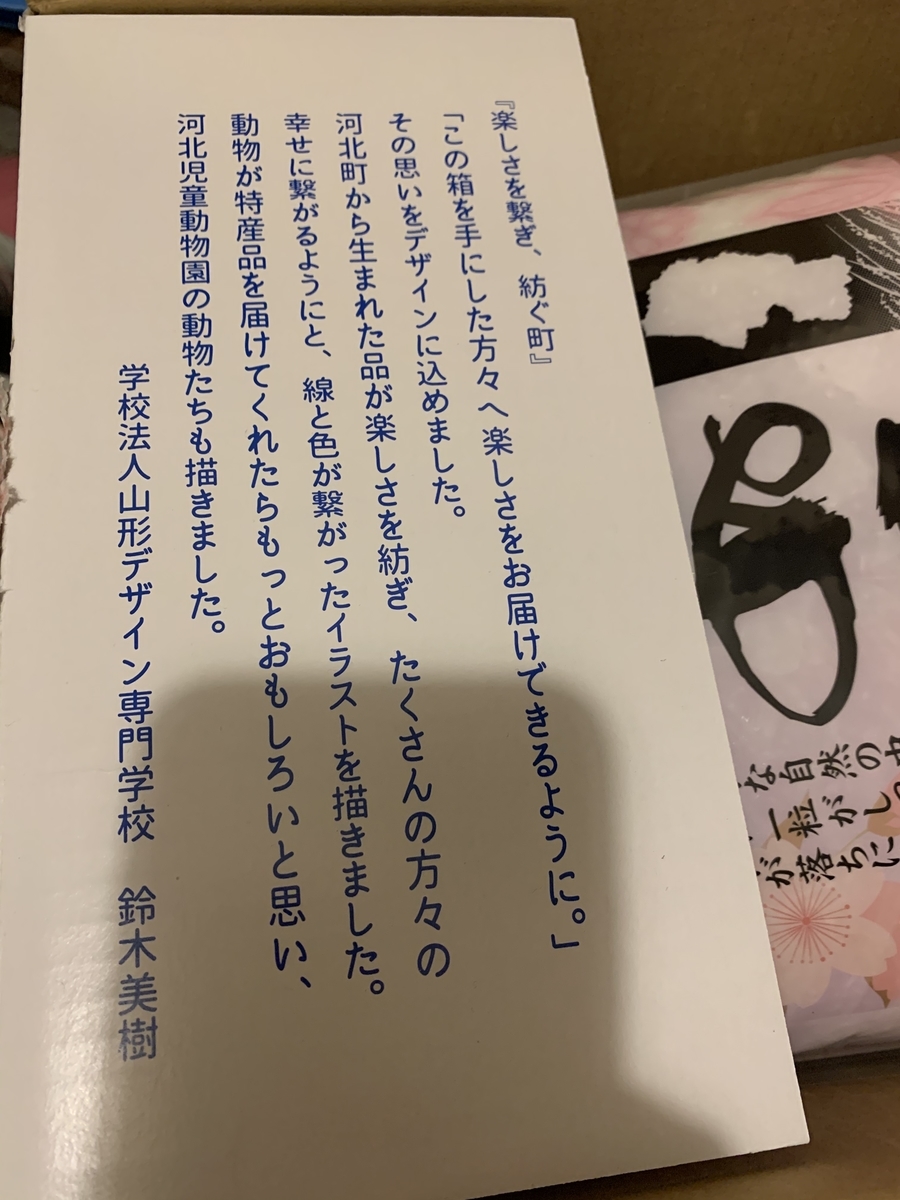 『楽しさを繋ぎ、紡ぐ町』
「この箱を手にした方々へ楽しさをお届けできるように。」
その思いをデザインに込めました。
河北町から生まれた品が楽しさを紡ぎ、たくさんの方々の
幸せに繋がるようにと、線と色が繋がったイラストを描きました。
動物が特産品を届けてくれたらもっとおもしろいと思い、
河北児童動物園の動物たちも描きました。
学校法人山形デザイン専門学校 鈴木美樹
な自然の
一粒がし
が落ちに